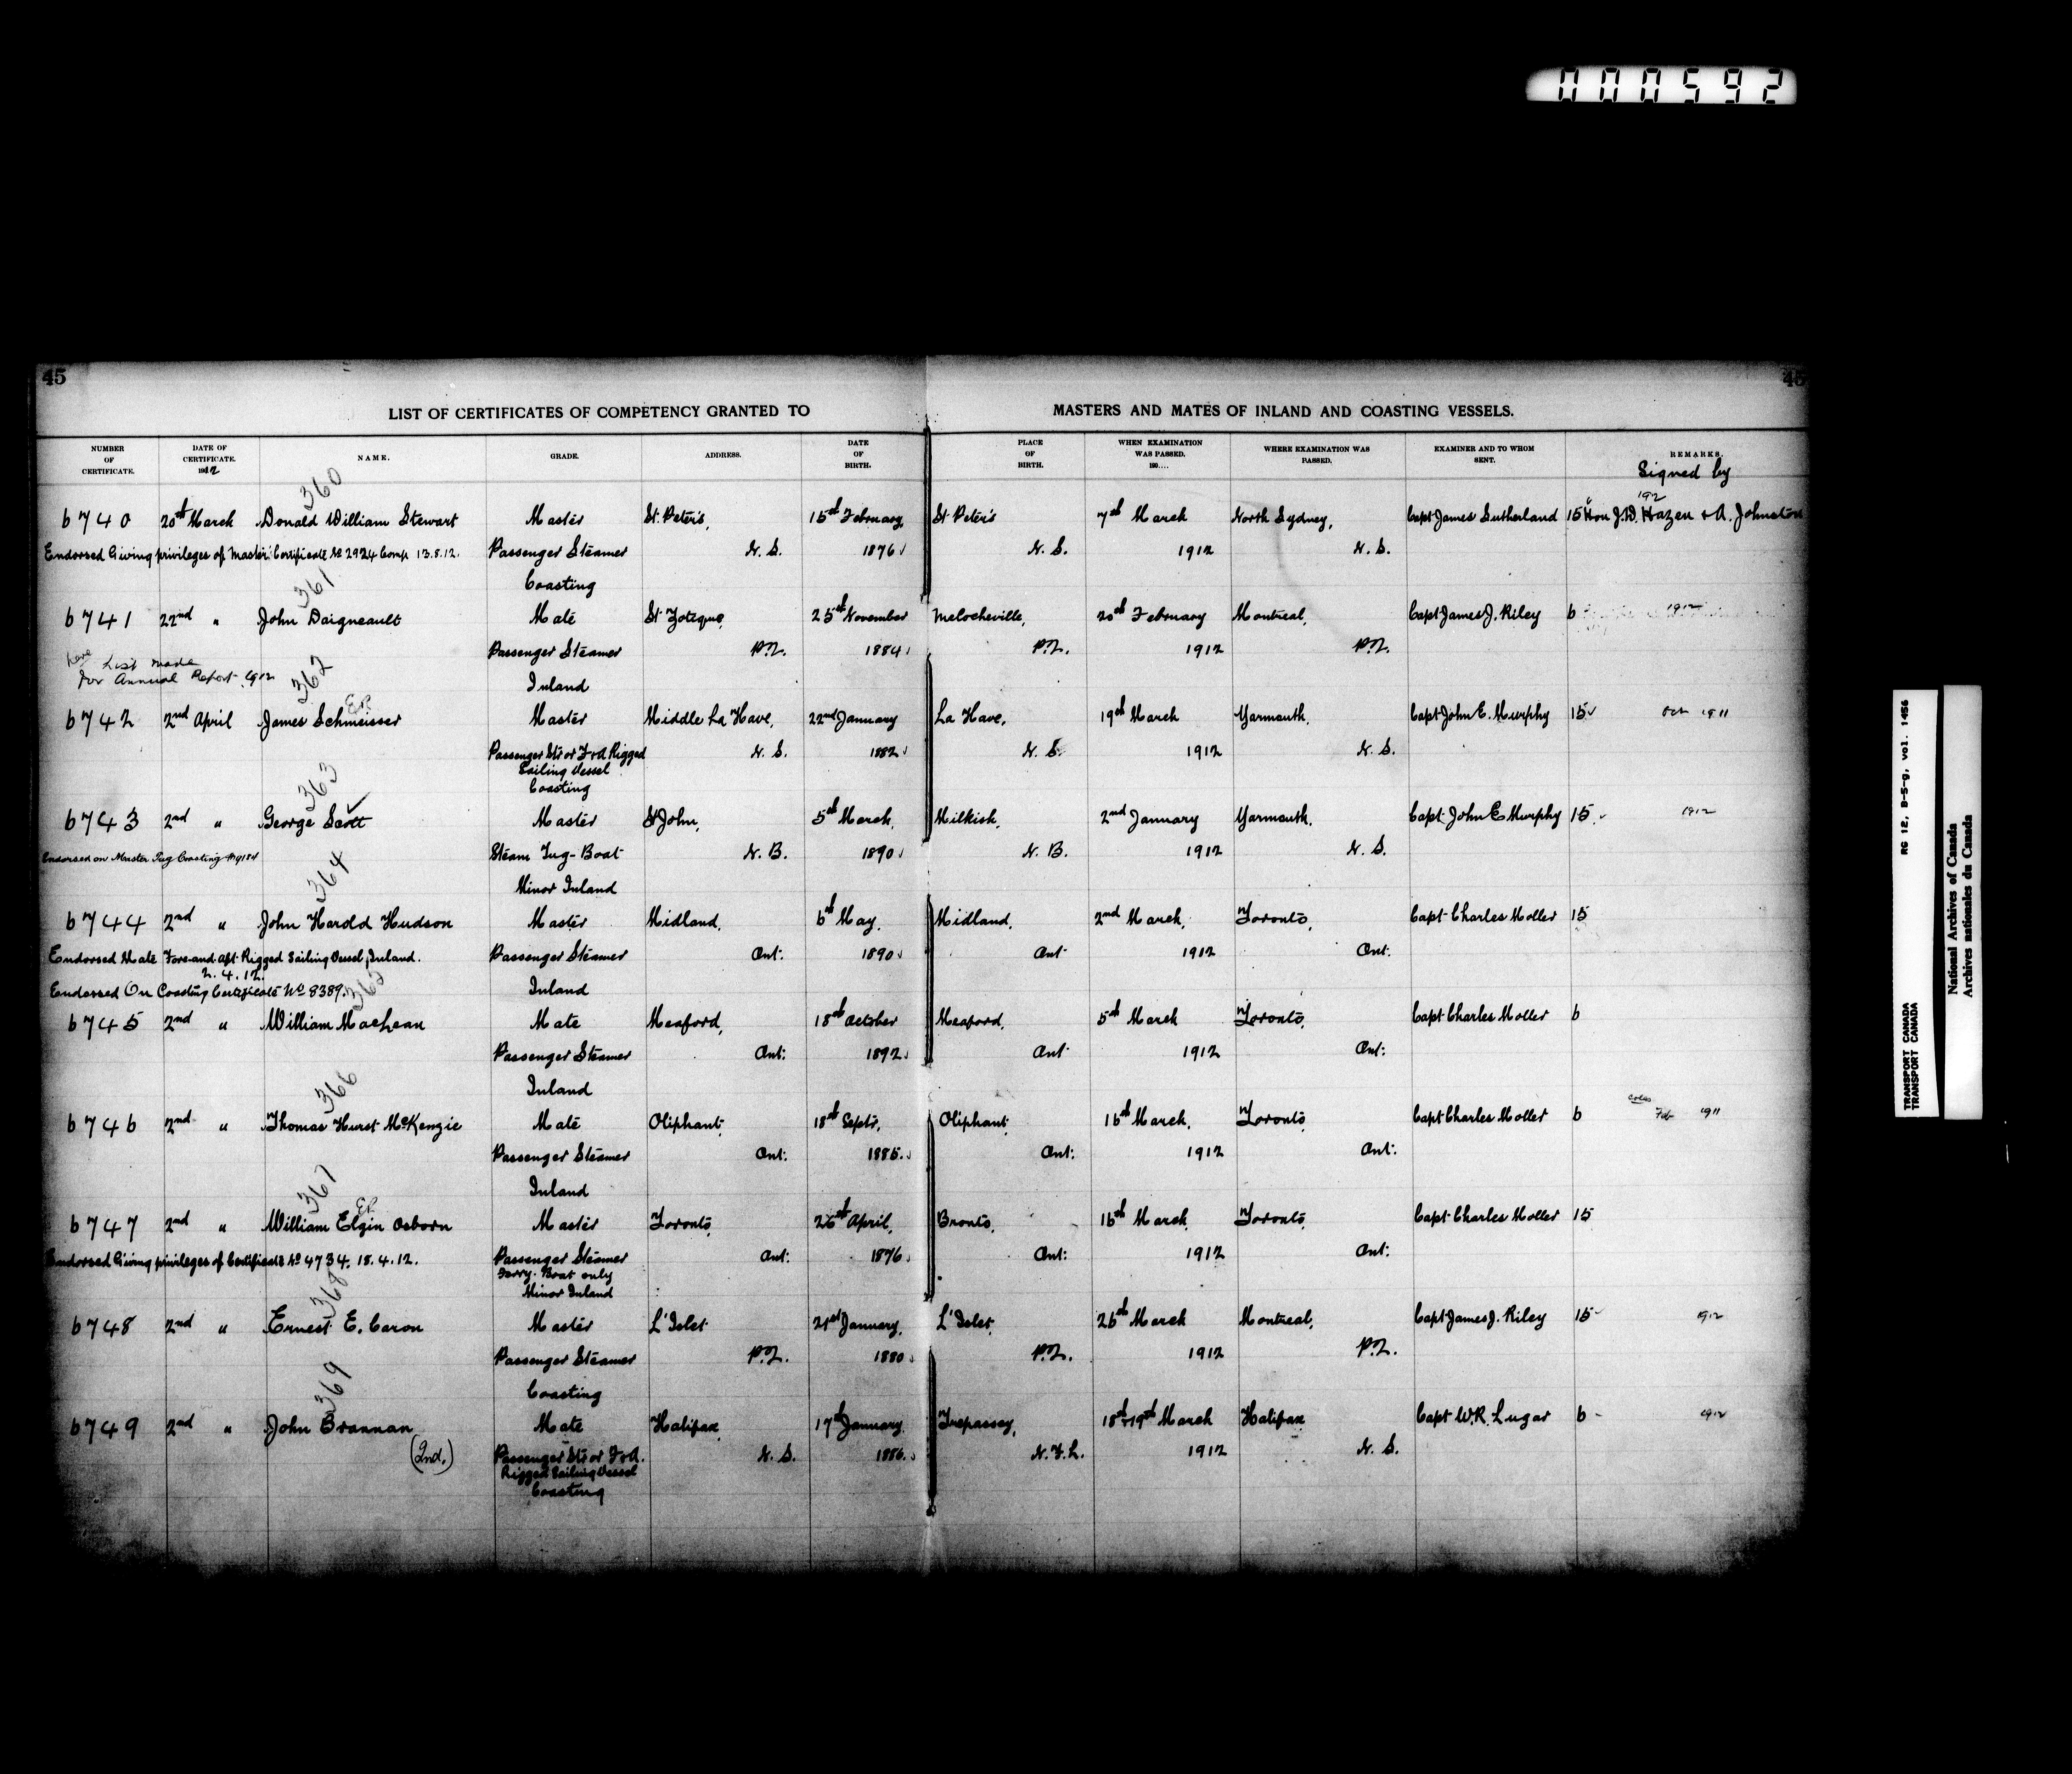 000592
45
45
LIST OF CERTIFICATES OF COMPETENCY GRANTED TO MASTERS AND MATES OF INLAND AND COASTING VESSELS.
NUMBER OF CERTIFICATE. DATE OF CERTIFICATE. 1912 NAME. GRADE. ADDRESS. DATE OF BIRTH. PLACE OF BIRTH. WHEN EXAMINATION WAS PASSED. 190.... WHERE EXAMINATION WAS PASSED. EXAMINER AND TO WHOM SENT. REMARKS.
Signed by
360 1912
6740 20th March Donald William Stewart Master St. Peter's, 15th February St Peter's 7th March North Sydney, Capt James Sutherland 15 Hon J.D. Hazen & A. Johnston
Endorsed Giving privileges of Master Certificate No 2924 Comp 13.8.12. Passenger Steamer N.S. 1876 N.S. 1912 N.S.
Coasting
361
6741 22nd " John Daigneault Mate St Zotique, 25th November Melocheville, 20th February Montreal, Capt James J. Riley 6 1912
Passenger Steamer P.Q. 1884 P.Q. 1912 P.Q.
here List made
for Annual Report 1912
Inland
362
6742 2nd April James Schmeisser Master Middle La Have, 22nd January La Have, 19th March Yarmouth, Capt John E. Murphy 15 Oct 1911
Passenger Str or F&A Rigged N.S. 1882 N.S. 1912 N.S.
Sailing Vessel
Coasting
363
6743 2nd " George Scott Master St John, 5th March, Milkish, 2nd January Yarmouth, Capt John E Murphy 15 1912
Endorsed on Master Tug Coasting Steam Tug-Boat N.B. 1890 N.B. 1912 N.S.
Minor Inland
364
6744 2nd " John Harold Hudson Master Midland, 6th May, Midland, 2nd March, Toronto, Capt Charles Moller 15
Endorsed Mate Fore-and-aft Rigged Sailing Vessel, Inland. Passenger Steamer Ont: 1890 Ont 1912 Ont.
2.4.12.
Endorsed On Coasting Certificate No 8389. Inland
365
6745 2nd " William MacLean Mate Meaford, 18th October Meaford, 5th March Toronto, Capt Charles Moller 6
Passenger Steamer Ont: 1892 Ont 1912 Ont:
Inland
366
6746 2nd " Thomas Hurst McKenzie Mate Oliphant, 18th Septr, Oliphant, 16th March, Toronto, Capt Charles Moller 6 Feb 1911
Passenger Steamer Ont: 1885 Ont: 1912 Ont:
Inland
367
6747 2nd " William Elgin Osborn Master Toronto, 26th April, Bronte, 16th March, Toronto, Capt Charles Moller 15
Endorsed Giving privileges of Certificate No 4734. 18.4.12. Passenger Steamer Ont: 1876 Ont: 1912 Ont:
Ferry Boat only
Minor Inland
368
6748 2nd " Ernest E. Caron Master L'Islet 21st January, L'Islet, 26th March Montreal, Capt James J. Riley 15 1912
Passenger Steamer P.Q. 1880 P.Q. 1912 P.Q.
Coasting
369
6749 2nd " John Brannan Mate Halifax, 17th January Trepassey, 18th & 19th March Halifax Capt W.R. Lugar 6 1912
(2nd.) Passenger Str or F&A. N.S. 1886 N.F.L. 1912 N.S.
Rigged Sailing Vessel
Coasting
TRANSPORT CANADA RG 12, B-5-g, vol. 1456
TRANSPORT CANADA
National Archives of Canada
Archives nationales du Canada